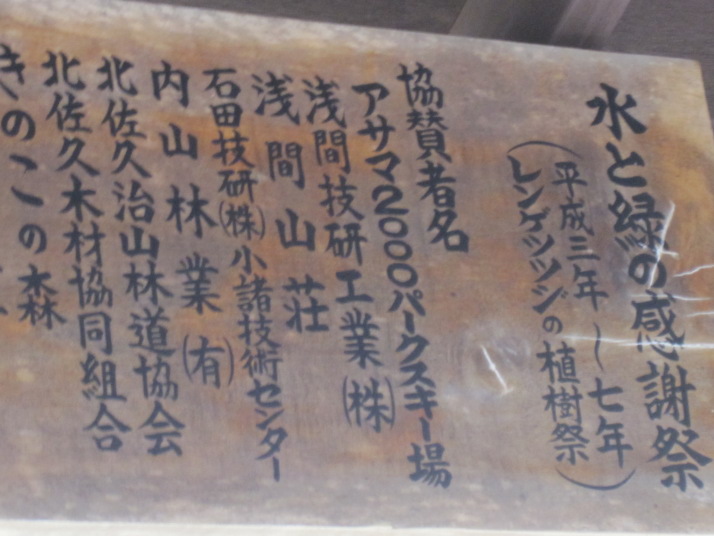 水と緑の感謝祭
(平成三年〜七年
レンゲツツジの植樹祭)
協賛者名
アサマ2000パークスキー場
浅間技研工業(株)
浅間山荘
石田技研(株)小諸技術センター
内山林業(有)
北佐久治山林道協会
北佐久木材協同組合
きのこの森